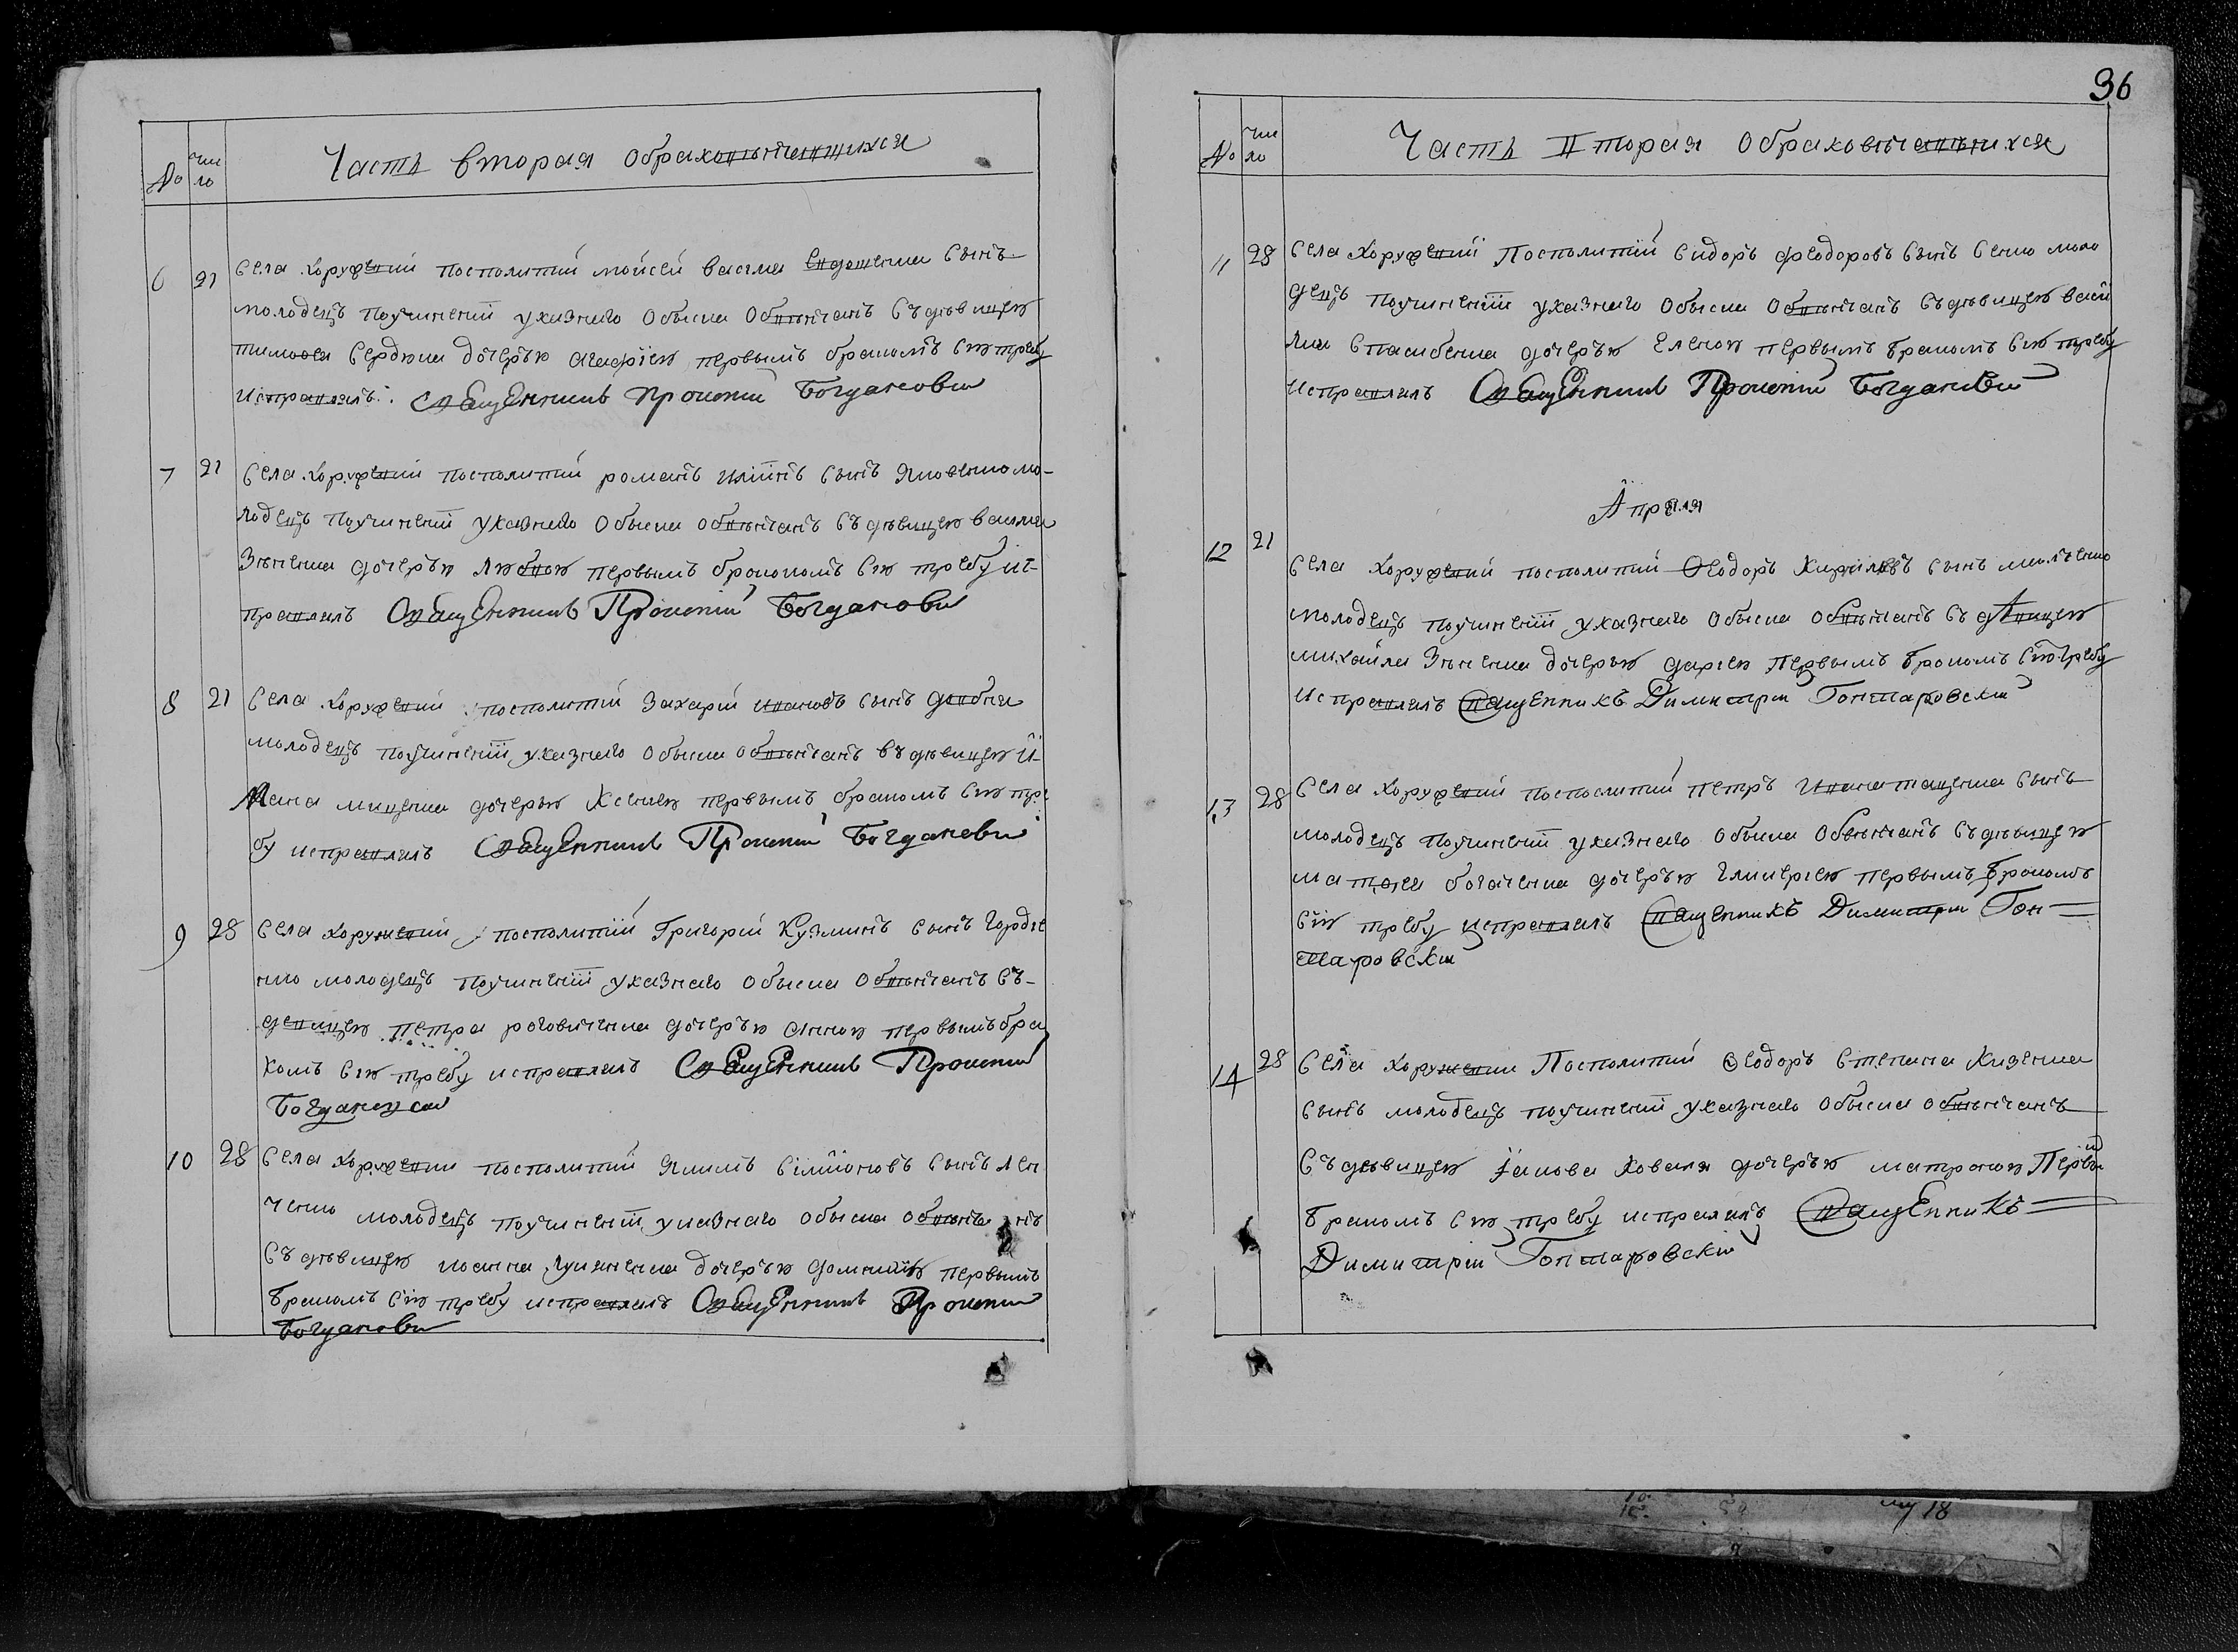 № Число Часть вторая обраховѣнчавшихся
6 21 Села Хоружевки посполитій Мойсей Василиа Евдошенка сынъ
молодецъ поучиненїи указнаго обыска обвѣнчанъ съ дѣвицею
Тимофея Сердюка дочерью Агафіею первымъ бракомъ сию требу
исправлялъ: Священникъ Прокопий Богданови
7 21 Села Хоружевки посполитій Романъ сынъ Яковенко мо-
лодецъ поучиненїи указнаго обыска обвѣнчанъ съ дѣвицею Василиа
Зѣненка дочерью Любвою первымъ бракомъ сию требу ис-
правлялъ Священникъ Прокопий Богданови
8 21 Села Хоружевки посполитій Захарій Ивановъ сынъ
молодецъ поучиненїи указнаго обыска обвѣнчанъ въ дѣвицею И-
вана миценка дочерью Ксениею первымъ бракомъ сию тре
бу исправлялъ Священникъ Прокопий Богданови
9 28 Села Хоружевки посполитій Григорій Кузминъ сынъ Гордѣе
нко молодецъ поучиненїи указнаго обыска обвѣнчанъ съ-
девицею Петра дочерью Анною первымъ бра
комъ сию требу исправлялъ Священникъ Прокопий
Богдановски
10 28 Села Хоружевки посполитій Якимъ Сілміоновъ сынъ Лев
ченко молодецъ поучиненїи указнаго обыска обвѣнчанъ
съ дѣвицею иоанна дочерью Домникію первымъ
бракомъ сию требу исправлялъ Священникъ Прокопий
Богданови
36
№ Число Часть Вторая обраковѣнчавшихся
11 28 Села Хоружевкїи Посполитій Сидоръ Феодоровъ сынъ Сенко моло
децъ поучиненїи указнаго обыска обвѣнчанъ съ дѣвицею Васи
лиа дочерью Еленою первымъ бракомъ сию требу
исправлялъ Священникъ Прокопий Богданови
Апреля
12 21
Села Хоружевки посполитій Ѳеодоръ Кириловъ сынъ
молодецъ поучиненїи указнаго обыска обвѣнчанъ съ дѣвицею
михайла Зѣненка дочерью Дариею первымъ бракомъ сию требу
исправлялъ Священникъ Димитрій Гонтаровскій
13 28 Села Хоружевки посполитій Петръ Ивана Таценка сынъ
молодецъ поучиненїи указнаго обыска обвѣнчанъ съ дѣвицею
Матфея Богаченка дочерью Гликериею первымъ бракомъ
сию требу исправлялъ Священникъ Димитрій Гон-
таровскій
14 28 Села Хоружевки Посполитій Ѳеодоръ Степана Кизенка
сынъ молодецъ поучиненїи указнаго обыска обвѣнчанъ
съ дѣвицею Іакова Коваля дочерью Матроною Первы
бракомъ сию требу исправлялъ Священникъ
Димитрій Гонтаровскій